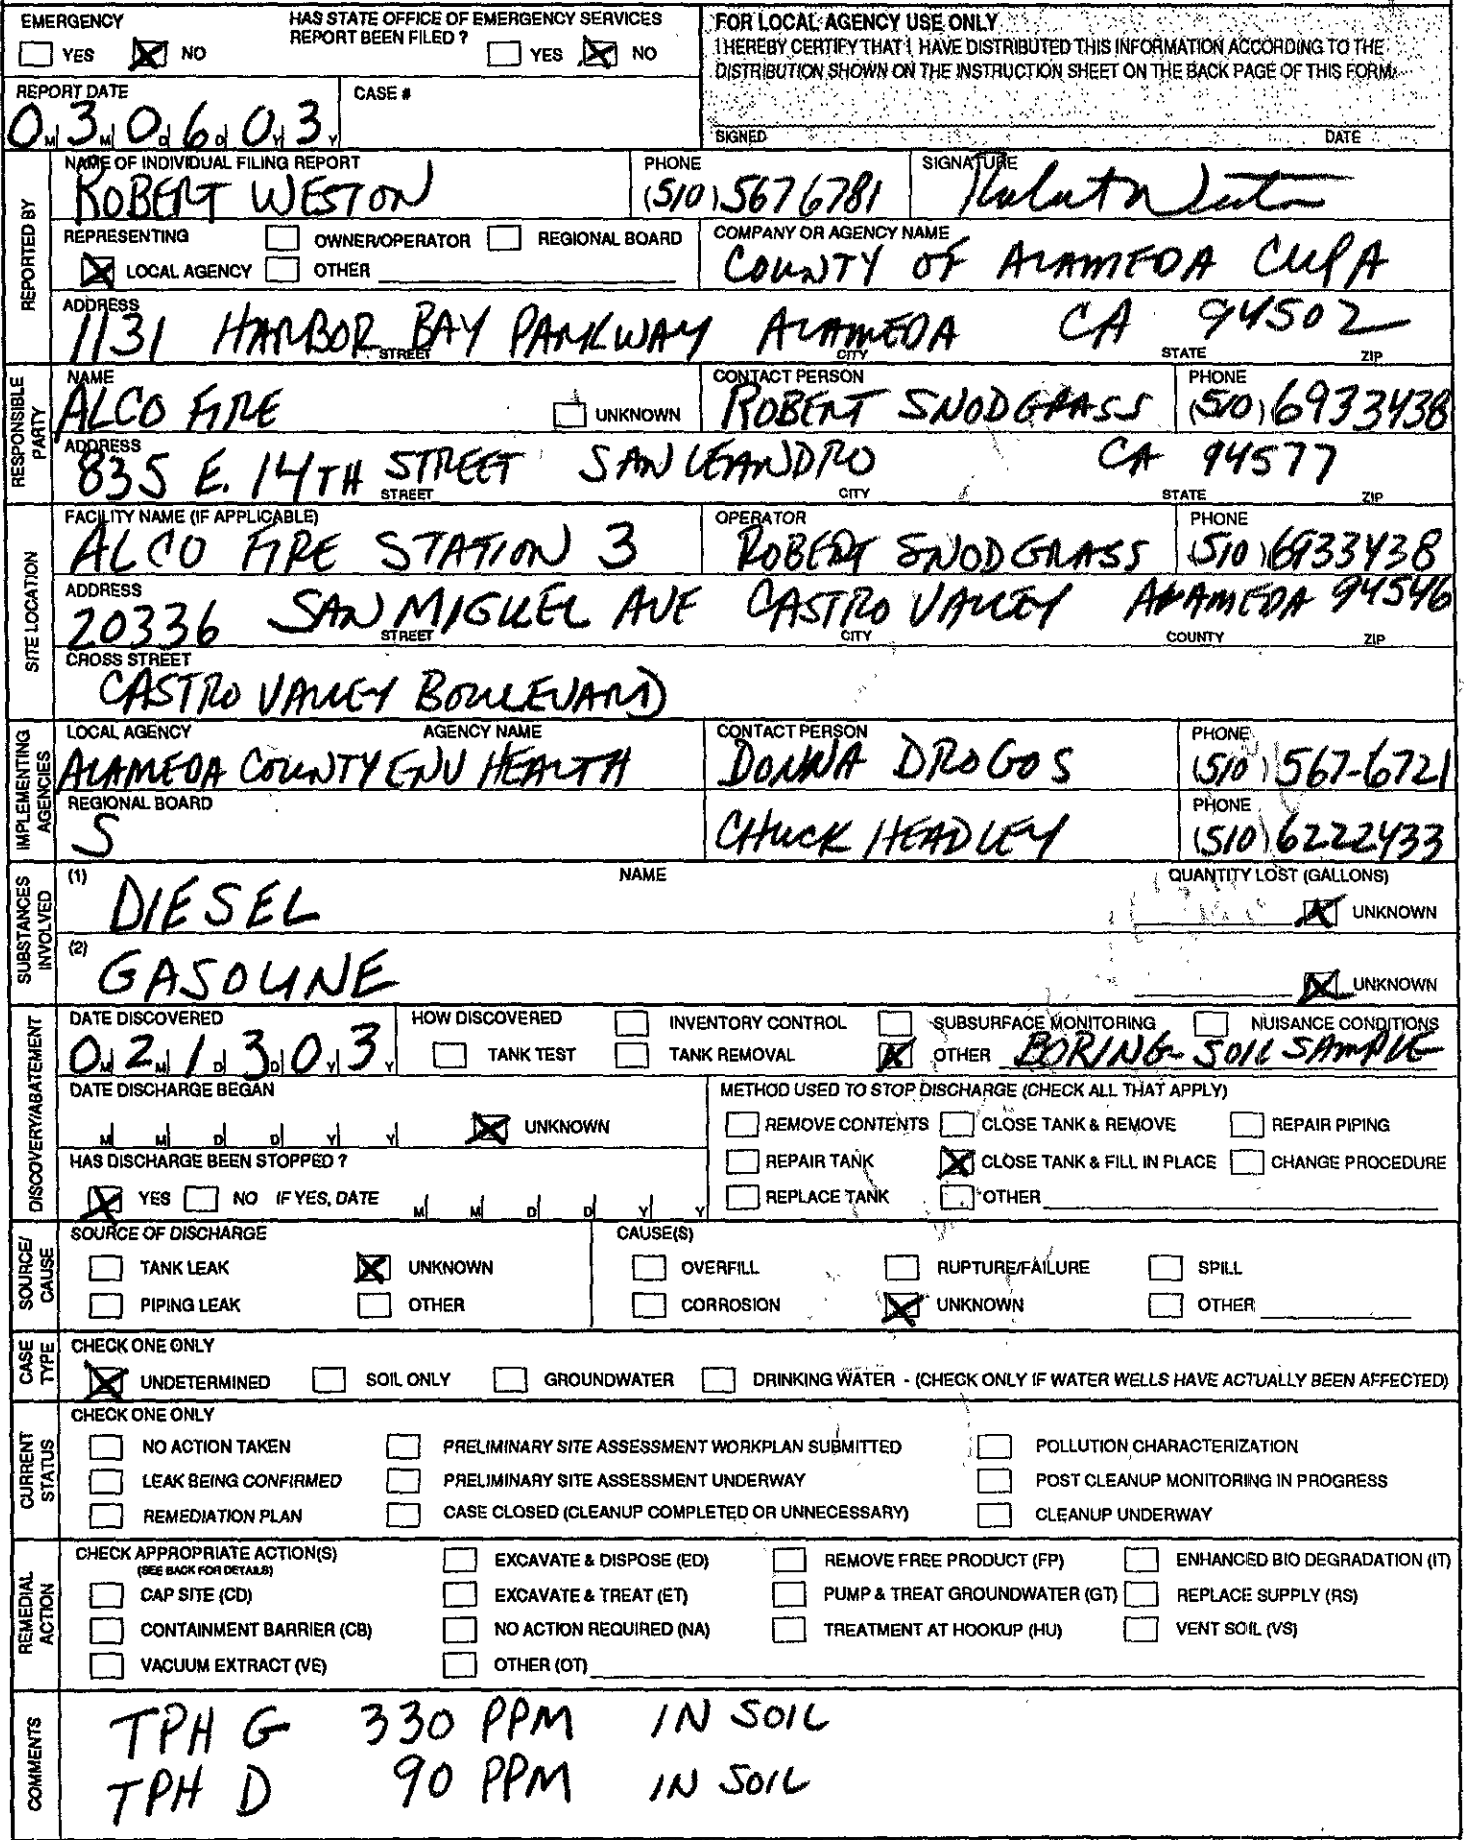 EMERGENCY
YES NO
HAS STATE OFFICE OF EMERGENCY SERVICES
REPORT BEEN FILED ?
YES NO
FOR LOCAL AGENCY USE ONLY
I HEREBY CERTIFY THAT I HAVE DISTRIBUTED THIS INFORMATION ACCORDING TO THE
DISTRIBUTION SHOWN ON THE INSTRUCTION SHEET ON THE BACK PAGE OF THIS FORM.
SIGNED DATE
REPORT DATE
0 M 3 M 0 D 6 D 0 Y 3 Y
CASE #
REPORTED BY
NAME OF INDIVIDUAL FILING REPORT
ROBERT WESTON
PHONE
(510) 567 6781
SIGNATURE
REPRESENTING OWNER/OPERATOR REGIONAL BOARD
LOCAL AGENCY OTHER
COMPANY OR AGENCY NAME
COUNTY OF ALAMEDA CUPA
ADDRESS
1131 HARBOR BAY PARKWAY ALAMEDA CA 94502
STREET CITY STATE ZIP
RESPONSIBLE
PARTY
NAME
ALCO FIRE
UNKNOWN
CONTACT PERSON
ROBERT SNODGRASS
PHONE
(510) 6933438
ADDRESS
835 E. 14TH STREET SAN LEANDRO CA 94577
STREET CITY STATE ZIP
SITE LOCATION
FACILITY NAME (IF APPLICABLE)
ALCO FIRE STATION 3
OPERATOR
ROBERT SNODGRASS
PHONE
(510) 6933438
ADDRESS
20336 SAN MIGUEL AVE CASTRO VALLEY ALAMEDA 94546
STREET CITY COUNTY ZIP
CROSS STREET
CASTRO VALLEY BOULEVARD
IMPLEMENTING
AGENCIES
LOCAL AGENCY AGENCY NAME
ALAMEDA COUNTY ENV HEALTH
CONTACT PERSON
DONNA DROGOS
PHONE
(510) 567-6721
REGIONAL BOARD
S
CHUCK HEADLEY
PHONE
(510) 6222433
SUBSTANCES
INVOLVED
(1) NAME QUANTITY LOST (GALLONS)
DIESEL UNKNOWN
(2)
GASOLINE UNKNOWN
DISCOVERY/ABATEMENT
DATE DISCOVERED
0 M 2 M 1 D 3 D 0 Y 3 Y
HOW DISCOVERED INVENTORY CONTROL SUBSURFACE MONITORING NUISANCE CONDITIONS
TANK TEST TANK REMOVAL OTHER BORING- SOIL SAMPLE
DATE DISCHARGE BEGAN
M M D D Y Y UNKNOWN
HAS DISCHARGE BEEN STOPPED ?
YES NO IF YES, DATE M M D D Y Y
METHOD USED TO STOP DISCHARGE (CHECK ALL THAT APPLY)
REMOVE CONTENTS CLOSE TANK & REMOVE REPAIR PIPING
REPAIR TANK CLOSE TANK & FILL IN PLACE CHANGE PROCEDURE
REPLACE TANK OTHER
SOURCE/
CAUSE
SOURCE OF DISCHARGE
TANK LEAK UNKNOWN
PIPING LEAK OTHER
CAUSE(S)
OVERFILL RUPTURE/FAILURE SPILL
CORROSION UNKNOWN OTHER
CASE
TYPE
CHECK ONE ONLY
UNDETERMINED SOIL ONLY GROUNDWATER DRINKING WATER - (CHECK ONLY IF WATER WELLS HAVE ACTUALLY BEEN AFFECTED)
CURRENT
STATUS
CHECK ONE ONLY
NO ACTION TAKEN PRELIMINARY SITE ASSESSMENT WORKPLAN SUBMITTED POLLUTION CHARACTERIZATION
LEAK BEING CONFIRMED PRELIMINARY SITE ASSESSMENT UNDERWAY POST CLEANUP MONITORING IN PROGRESS
REMEDIATION PLAN CASE CLOSED (CLEANUP COMPLETED OR UNNECESSARY) CLEANUP UNDERWAY
REMEDIAL
ACTION
CHECK APPROPRIATE ACTION(S) EXCAVATE & DISPOSE (ED) REMOVE FREE PRODUCT (FP) ENHANCED BIO DEGRADATION (IT)
(SEE BACK FOR DETAILS)
CAP SITE (CD) EXCAVATE & TREAT (ET) PUMP & TREAT GROUNDWATER (GT) REPLACE SUPPLY (RS)
CONTAINMENT BARRIER (CB) NO ACTION REQUIRED (NA) TREATMENT AT HOOKUP (HU) VENT SOIL (VS)
VACUUM EXTRACT (VE) OTHER (OT)
COMMENTS
TPH G 330 PPM IN SOIL
TPH D 90 PPM IN SOIL